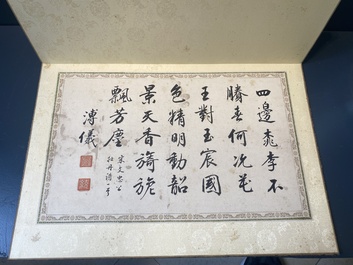 四邊桃李不
勝春何況花
王對玉宸國
色精明動韶
景天香旖旎
飄芳塵
宋文忠公
牡丹詩一章
溥儀